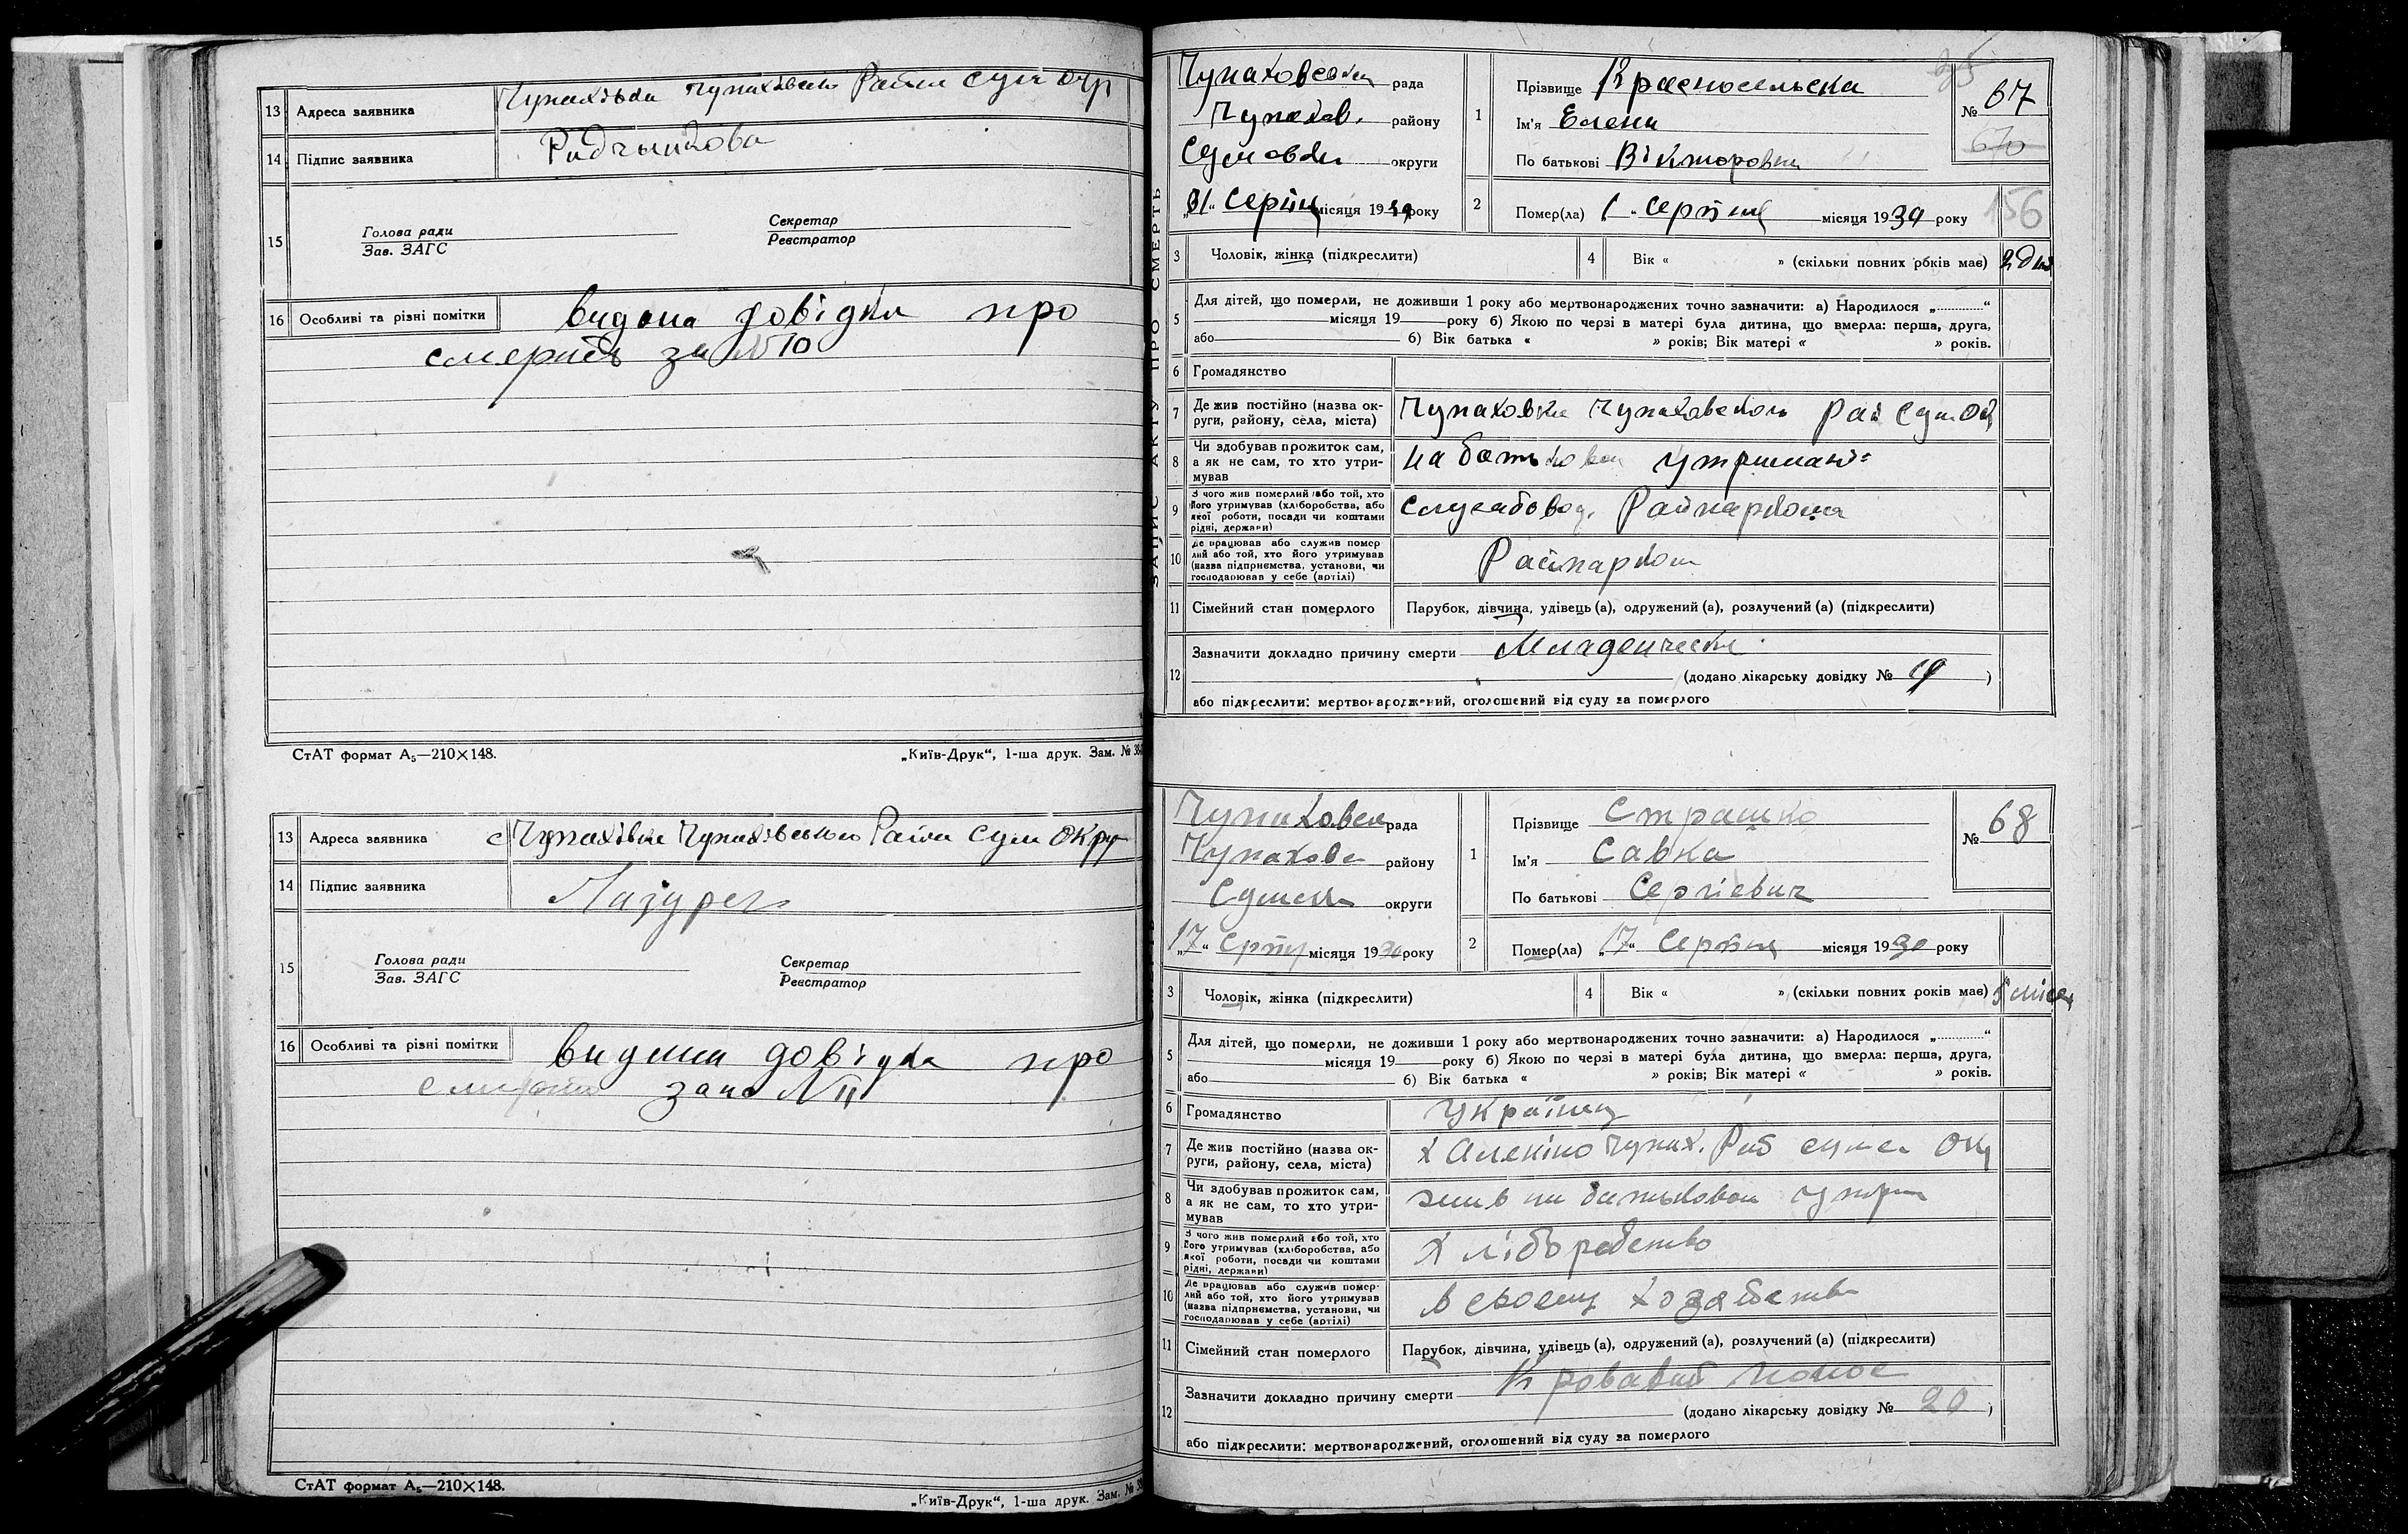 13 Адреса заявника Чупахівка Чупахівськ Район Сум Окр
14 Підпис заявника
15 Голова ради Секретар
Зав. ЗАГС Реєстратор
16 Особливі та різні помітки видана довідка про
смерть за №10
СтАТ формат А₅—210×148. „Київ-Друк“, 1-ша друк. Зам. №
13 Адреса заявника с Чупахівка Чупахівського Район Сум Окру
14 Підпис заявника
15 Голова ради Секретар
Зав. ЗАГС Реєстратор
16 Особливі та різні помітки видана довідка про
смерть №11
СтАТ формат А₅—210×148.
„Київ-Друк“, 1-ша друк. Зам. №
ЗАПИС АКТУ ПРО СМЕРТЬ
рада
Чупахов. району
округи
місяця 19 року
1 Прізвище Красносельска
Ім'я Елена
По батькові Вікторовна
35
№ 67
670
2 Помер(ла) 1 Серпня місяця 1930 року
156
3 Чоловік, жінка (підкреслити)
4 Вік « » (скільки повних років має) 2 дні
5 Для дітей, що померли, не доживши 1 року або мертвонароджених точно зазначити: а) Народилося „ “
місяця 19 року б) Якою по черзі в матері була дитина, що вмерла: перша, друга,
або б) Вік батька « » років; Вік матері « » років.
6 Громадянство
7 Де жив постійно (назва округи, району, села, міста) Чупаховка Чупаховского Рай Сум Ок
8 Чи здобував прожиток сам, а як не сам, то хто утримував на батьковом утримані
9 З чого жив померлий або той, хто його утримував (хліборобства, або якої роботи, посади чи коштами рідні, держави) Райпаркома
10 Де працював або служив померлий або той, хто його утримував (назва підприємства, установи, чи господарював у себе (артілі) Райпарком
11 Сімейний стан померлого Парубок, дівчина, удівець (а), одружений (а), розлучений (а) (підкреслити)
12 Зазначити докладно причину смерти Младенческа
(додано лікарську довідку № 19 )
або підкреслити: мертвонароджений, оголошений від суду за померлого
рада
району
округи
„17“ місяця 1930 року
1 Прізвище Страшко
Ім'я Савка
По батькові Сергієвич
№ 68
2 Помер(ла) „17“ Серпня місяця 1930 року
3 Чоловік, жінка (підкреслити)
4 Вік « » (скільки повних років має) 5 місяц
5 Для дітей, що померли, не доживши 1 року або мертвонароджених точно зазначити: а) Народилося „ “
місяця 19 року б) Якою по черзі в матері була дитина, що вмерла: перша, друга,
або б) Вік батька « » років; Вік матері « » років.
6 Громадянство Українец
7 Де жив постійно (назва округи, району, села, міста) х Алекіно Чупах. Рай Сумск Окр
8 Чи здобував прожиток сам, а як не сам, то хто утримував жив на батьковом утрим
9 З чого жив померлий або той, хто його утримував (хліборобства, або якої роботи, посади чи коштами рідні, держави) Хліборобство
10 Де працював або служив померлий або той, хто його утримував (назва підприємства, установи, чи господарював у себе (артілі) в своему хозяйстве
11 Сімейний стан померлого Парубок, дівчина, удівець (а), одружений (а), розлучений (а) (підкреслити)
12 Зазначити докладно причину смерти Кровавий понос
(додано лікарську довідку № 20 )
або підкреслити: мертвонароджений, оголошений від суду за померлого